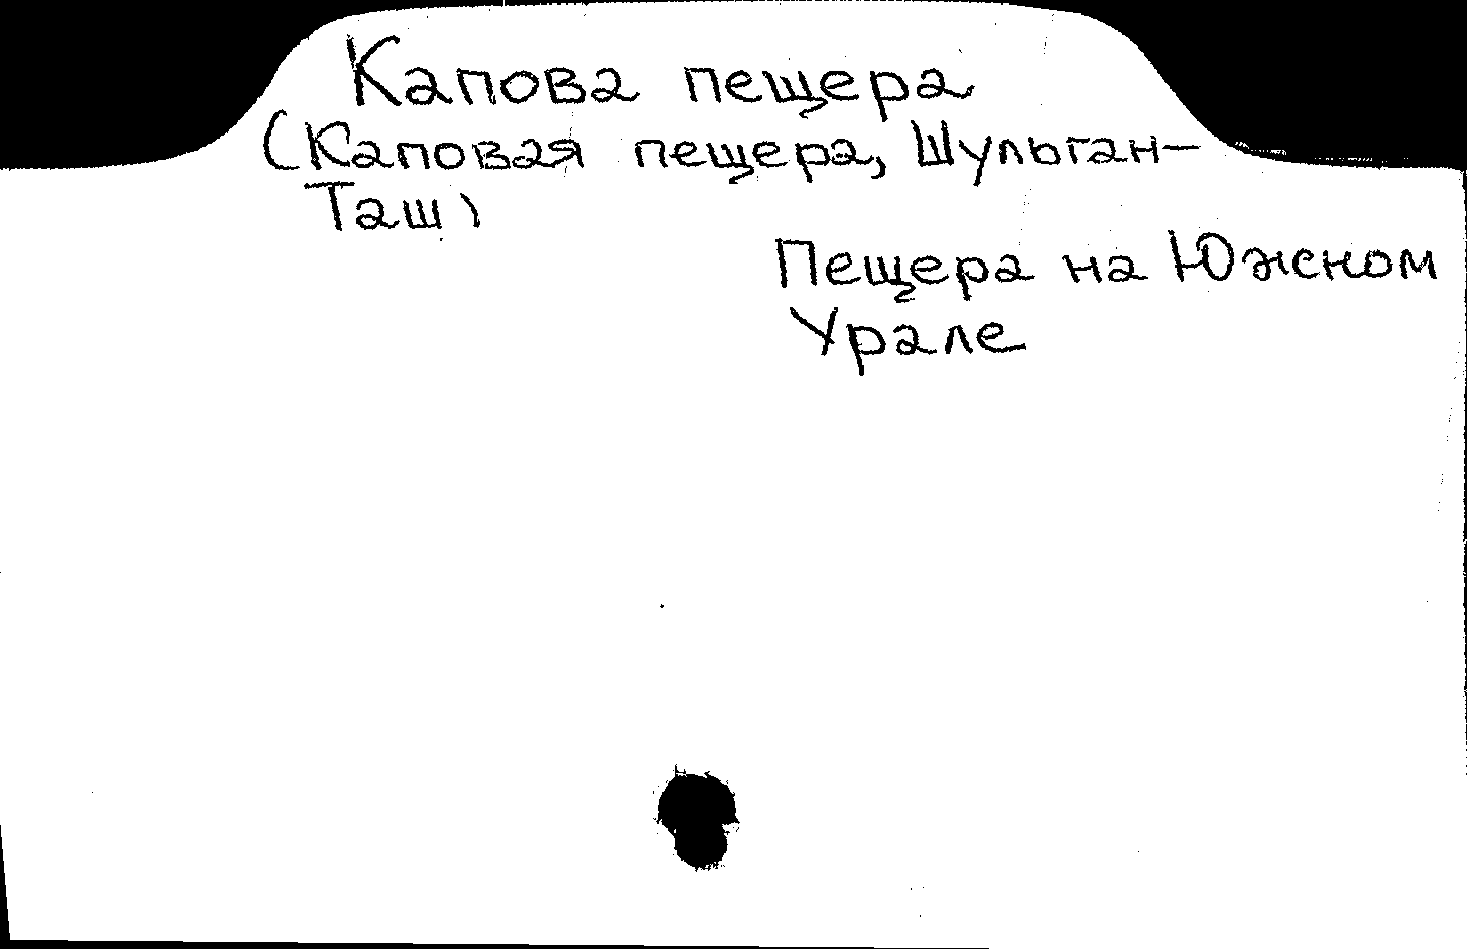 Капова пещера
(Каповая пещера, Шульган-
Таш)
Пещера на Южном
Урале